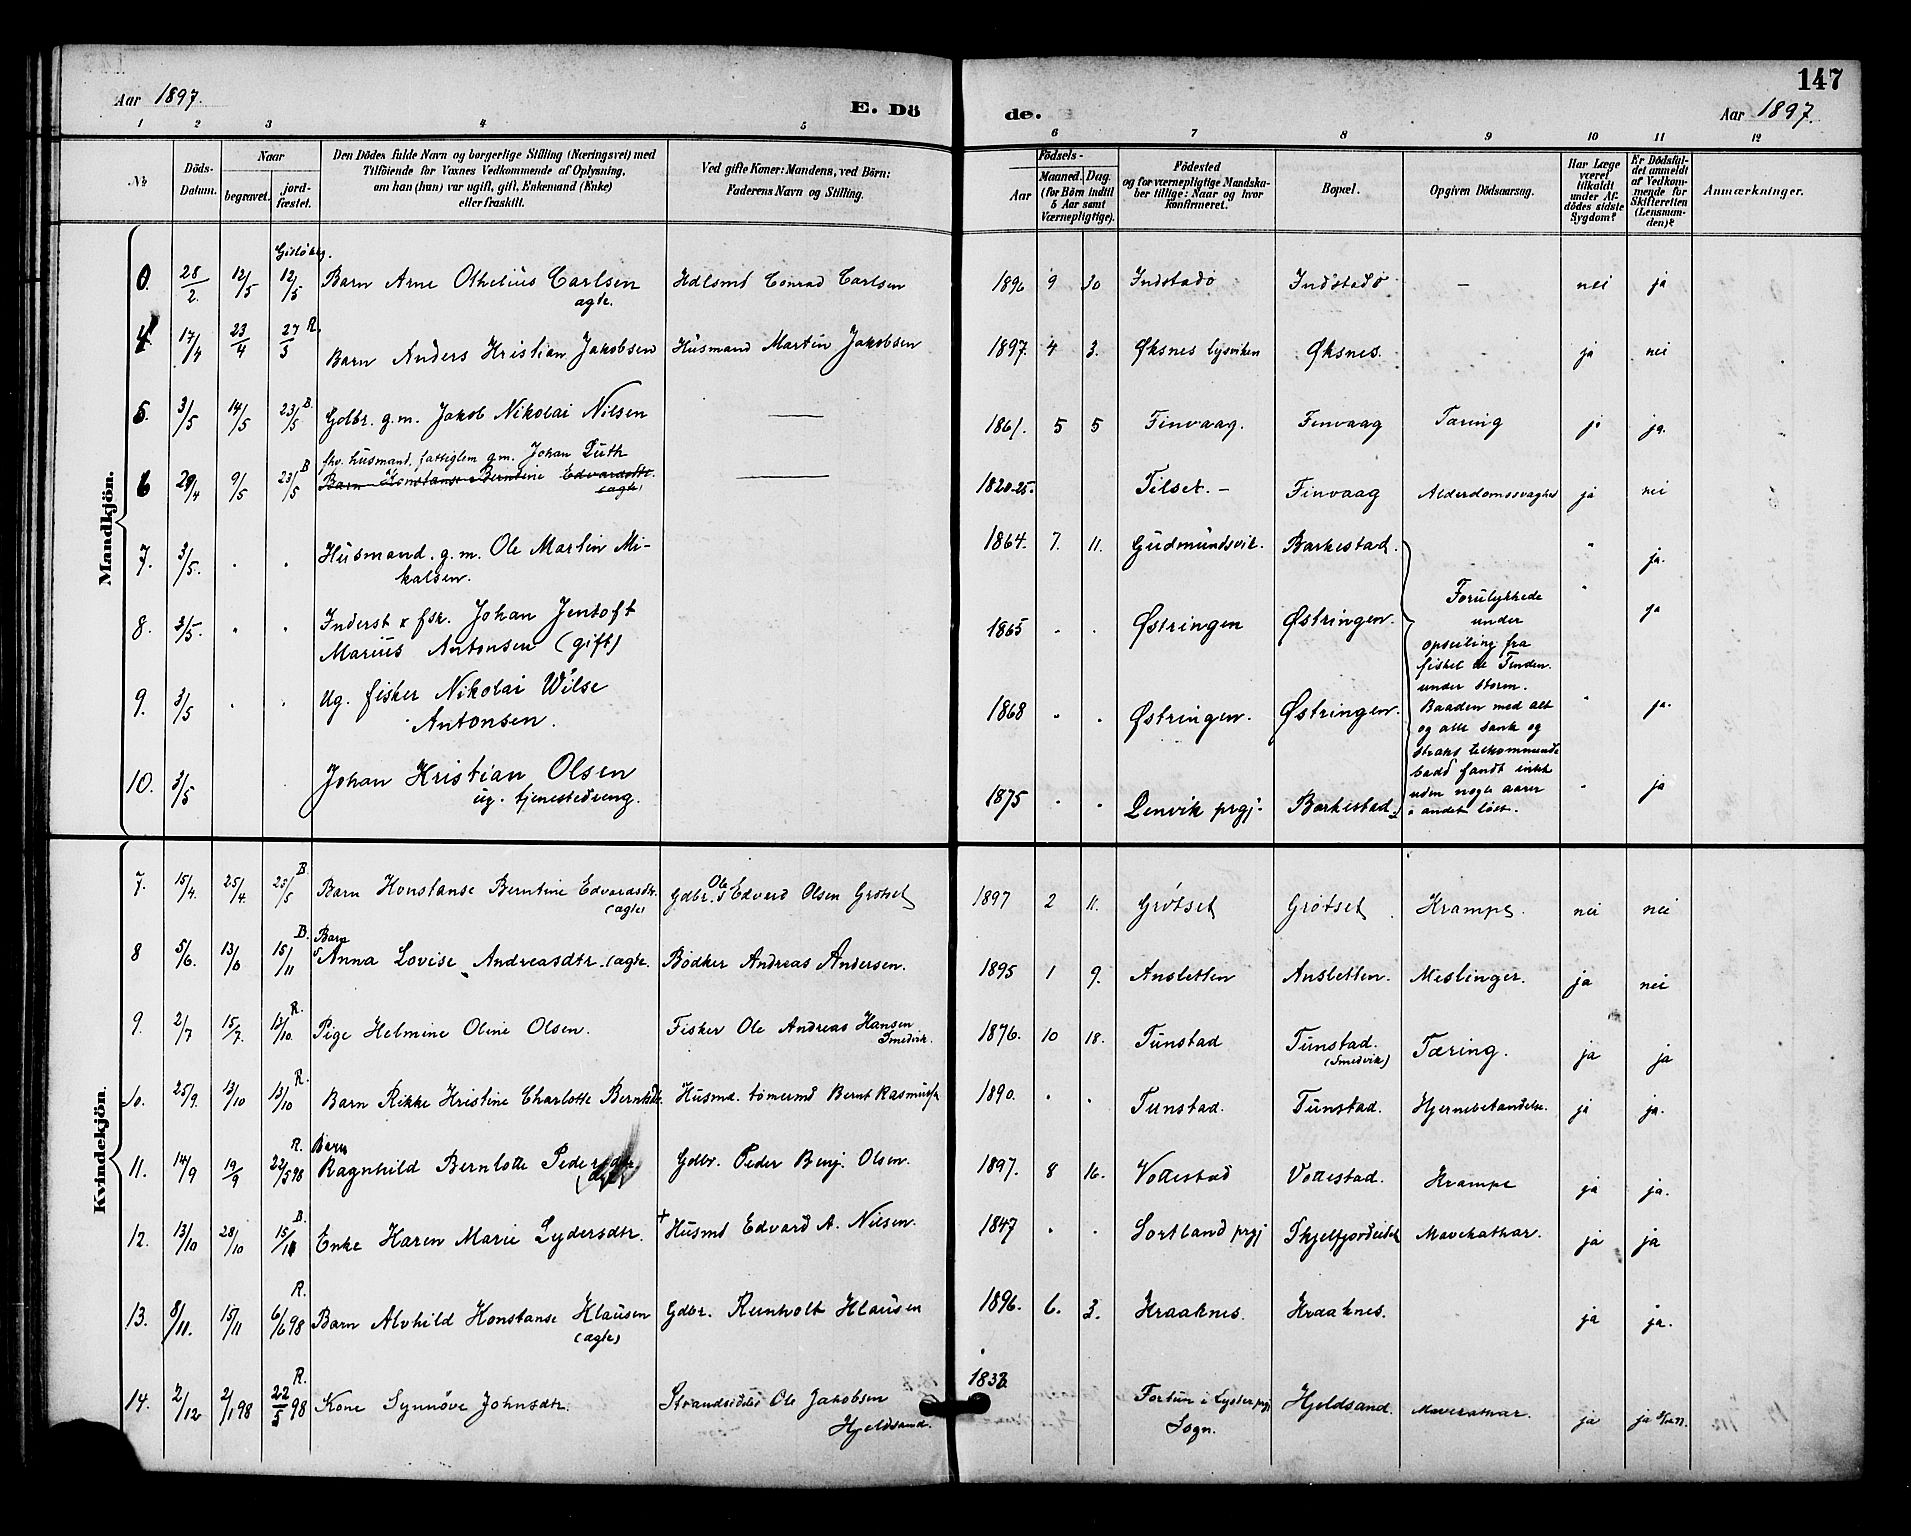 147
Aar 1897.
E. Dö
de.
Aar 1897.
1 2 3 4 5 6 7 8 9 10 11 12
No
Döds-Datum.
Naar
begravet.
jord-fæstet.
Den Dödes fulde Navn og borgerlige Stilling (Næringsvei) med
Tilföiende for Voxnes Vedkommende af Oplysning,
om han (hun) var ugift, gift, Enkemand (Enke)
eller fraskilt.
Ved gifte Koner: Mandens, ved Börn:
Faderens Navn og Stilling.
Födsels-
Aar
Maaned.
Dag.
(for Börn indtil
5 Aar samt
Værnepligtige).
Födested
og for værnepligtige Mandska-
ber tillige: Naar og hvor
konfirmeret.
Bopæl.
Opgiven Dödsaarsag.
Har Læge
været
tilkaldt
under Af-
dödes sidste
Sygdom?
Er Dödsfal-
det anmeldt
af Vedkom-
mende for
Skifteretten
(Lensman-
den)?
Anmærkninger.
Mandkjön.
0. 28/2. 12/5 12/5 Barn Arne Othelius Carlsen Hdlsmt Conrad Carlsen 1896 9 30 Indstadø Indstadø — nei ja
agte.
4 17/4 23/4 27/5 R. Barn Anders Kristian Jakobsen Husmand Martin Jakobsen 1897. 4 3. Øksnes Øksnes. ja nei
5. 3/5 14/5 23/5 B. Gdbr. g.m. Jakob Nikolai Nilsen — 1861. 5 5 Finvaag. Finvaag Tæring ja ja.
fhv. husmand, fattiglem g.m. Johan Luth
6 29/4 9/5 23/5 B Barn Konstanse Berntine Edvardsdtr. — 1820-25. Tilset. – Finvaag Alderdomssvaghed ja nei
(agte)
7. 3/5. " " Husmand. g.m. Ole Martin Mi- 1864. 7. 11. Gudmundsvik. Barkestad. " ja.
kalsen.
8. 3/5. " " Inderst & fsr. Johan Jentoft 1865 " " Østringen Østringen. " ja
Marius Antonsen (gift)
9. 3/5 " " Ug. fisker Nikolai Wilse 1868 " " Østringen. Østringen. " ja.
Antonsen.
10. 3/5 Johan Kristian Olsen 1875 " " Lenvik prgj. Barkestad. " ja
ug. tjenestedreng.
Forulykkede
under
opseiling fra
fisket
under storm.
Baaden med alt
og alle sank og
straks tilkommende
baad fandt intet
uden nogle aarer
o andet løst.
Kvindekjön.
7. 15/4. 25/4 25/5 B. Barn Konstanse Berntine Edvardsdtr. Gdbr. Ole Edvard Olsen Grøtset 1897 2 11. Grøtset Grøtset Krampe. nei nei
(agte)
Barn
8 5/6. 13/6 15/11 B. Anna Lovise Andreasdtr. (agte. Bødker Andreas Andersen. 1895 1 9. Ansletten Ansletten. Meslinger. ja nei
9. 2/7 15/7. 13/10. R. Pige Helmine Oline Olsen. Fisker Ole Andreas Hansen 1876. 10 18. Tunstad Tunstad. Tæring. ja ja
Smedvik. (Smedvik)
10. 25/9. 13/10 13/10 R. Barn Rikke Kristine Charlotte Berntsdtr. Husmd. tømermd Bernt Rasmussen 1890. " " Tunstad. Tunstad. Hjernebetændelse. ja ja.
Barn
11. 14/9 19/9 22/5 98 R. Ragnhild Bernlotte Pedersdtr Gdbr. Peder Benj. Olsen. 1897. 8 16. Vottestad Vottestad. Krampe ja ja.
12. 13/10 28/10 15/11 B. Enke Karen Marie Lydersdtr. † Husmd Edvard A. Nilsen. 1847 " " Sortland prgj Skjelfjordeidet Mavekathar. ja ja
13. 8/11. 15/11 6/6 98 R. Barn Alvhild Konstanse Klausen Gdbr. Reinholt Klausen 1896. 6. 3. Kraaknes. Kraaknes. ja ja.
(agte)
14. 2/12 2/1 98 22/5 98 R. Kone Synnöve Johnsdtr. Strandsidder Ole Jakobsen 1833. Fortun i Lyster prgj Hjeldsand. Mavekathar. ja ja
Hjeldsand. Sogn.